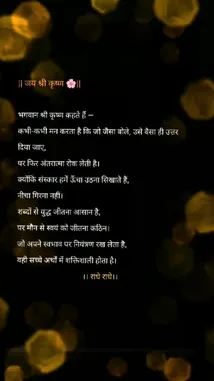 || जय श्री कृष्ण 🌸||
भगवान श्री कृष्ण कहते हैं —
कभी-कभी मन करता है कि जो जैसा बोले, उसे वैसा ही उत्तर
दिया जाए,
पर फिर अंतरात्मा रोक लेती है।
क्योंकि संस्कार हमें ऊँचा उठना सिखाते हैं,
नीचा गिरना नहीं।
शब्दों से युद्ध जीतना आसान है,
पर मौन से स्वयं को जीतना कठिन।
जो अपने स्वभाव पर नियंत्रण रख लेता है,
वही सच्चे अर्थों में शक्तिशाली होता है।
।। राधे राधे।।